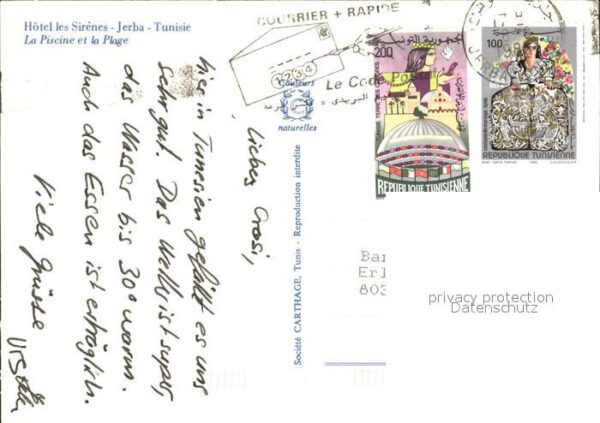 Hôtel les Sirènes - Jerba - Tunisie
La Piscine et la Plage
COURRIER + RAPIDE
1234
Le Code Postal
200
الجمهورية التونسية
REPUBLIQUE TUNISIENNE
100
REPUBLIQUE TUNISIENNE
Couleurs
naturelles
Société CARTHAGE, Tunis - Reproduction interdite
hier in Tunesien gefällt es uns
sehr gut. Das Wetter ist super,
das Wasser bis 30° warm.
Auch das Essen ist erträglich.
Viele Grüsse
Bar
Erl
803
privacy protection
Datenschutz